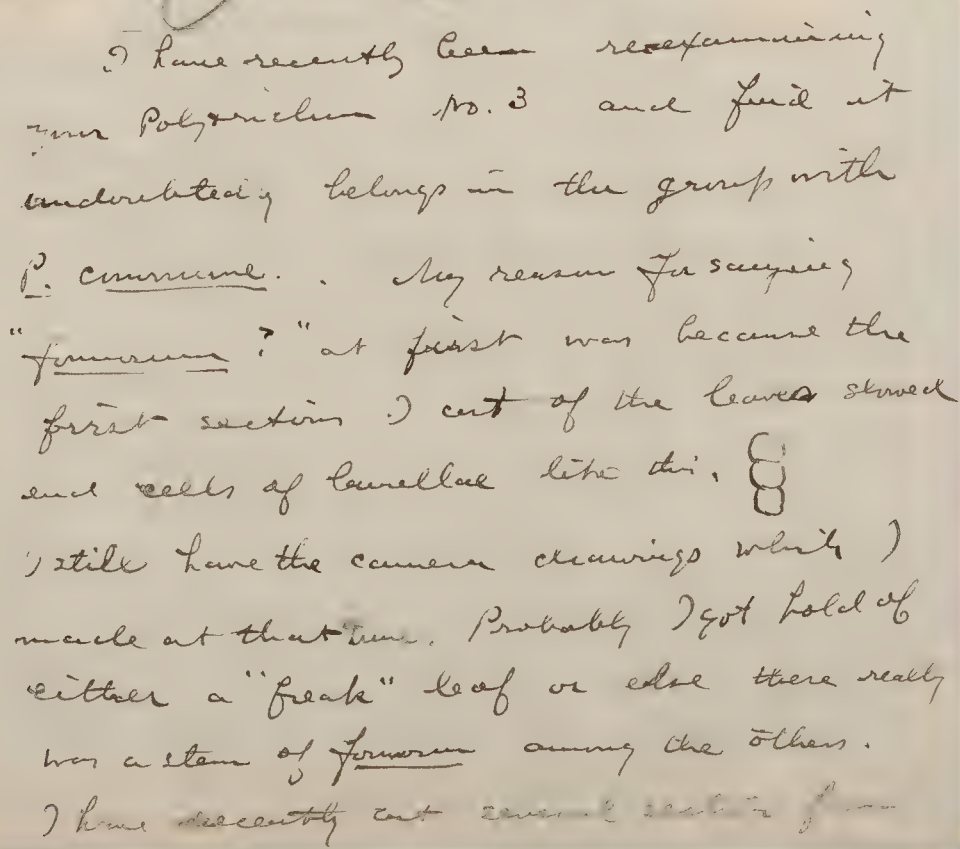 I have recently been re-examining
your Polytrichum No. 3 and find it
undoubtedly belongs in the group with
P. commune. My reason for saying
"formosum ?" at first was because the
first sections I cut of the leaves showed
end cells of lamellae like this.
I still have the camera drawings which I
made at that time. Probably I got hold of
either a "freak" leaf or else there really
was a stem of formosum among the others.
I have recently cut several sections from